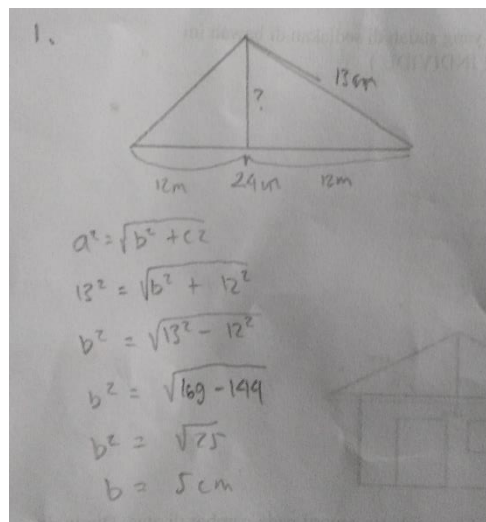 1.
13 cm
?
12m 24m 12m
a² = √b² + c²
13² = √b² + 12²
b² = √13² - 12²
b² = √169 - 144
b² = √25
b = 5 cm